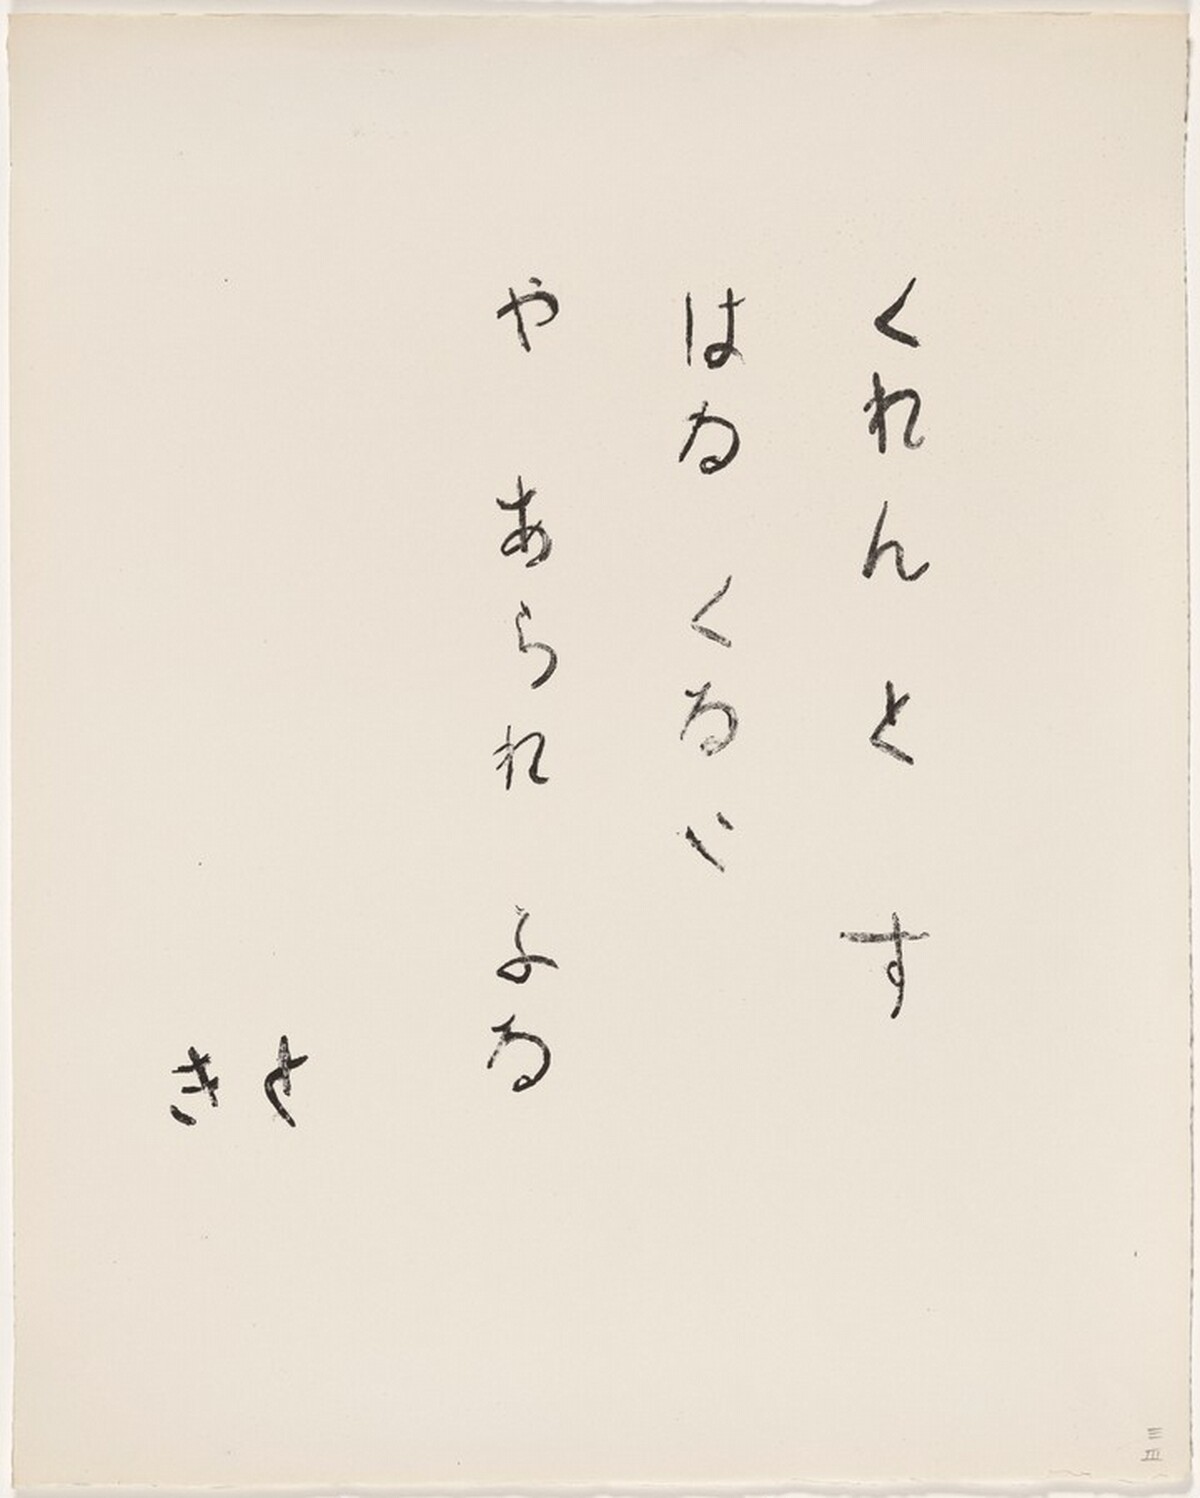 くれんとす
はる くるい
や あられ よる
と
き
三
III